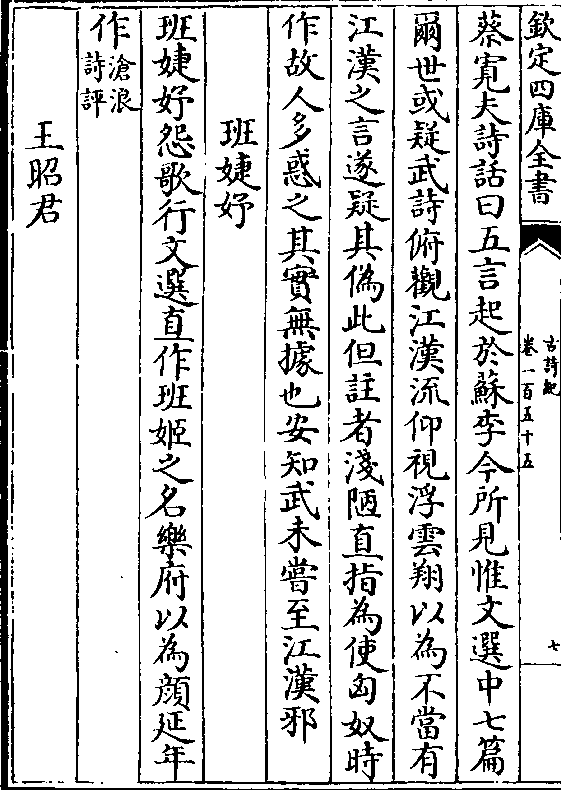 欽定四庫全書
古詩紀
卷一百五十五
七
蔡寛夫詩話曰五言起於蘇李今所見惟文選中七篇
爾世或疑武詩俯觀江漢流仰視浮雲翔以為不當有
江漢之言遂疑其偽此但註者淺陋直指為使匈奴時
作故人多惑之其實無據也安知武未嘗至江漢邪
班婕妤
班婕妤怨歌行文選直作班姬之名樂府以為顔延年
作滄浪詩評
王昭君